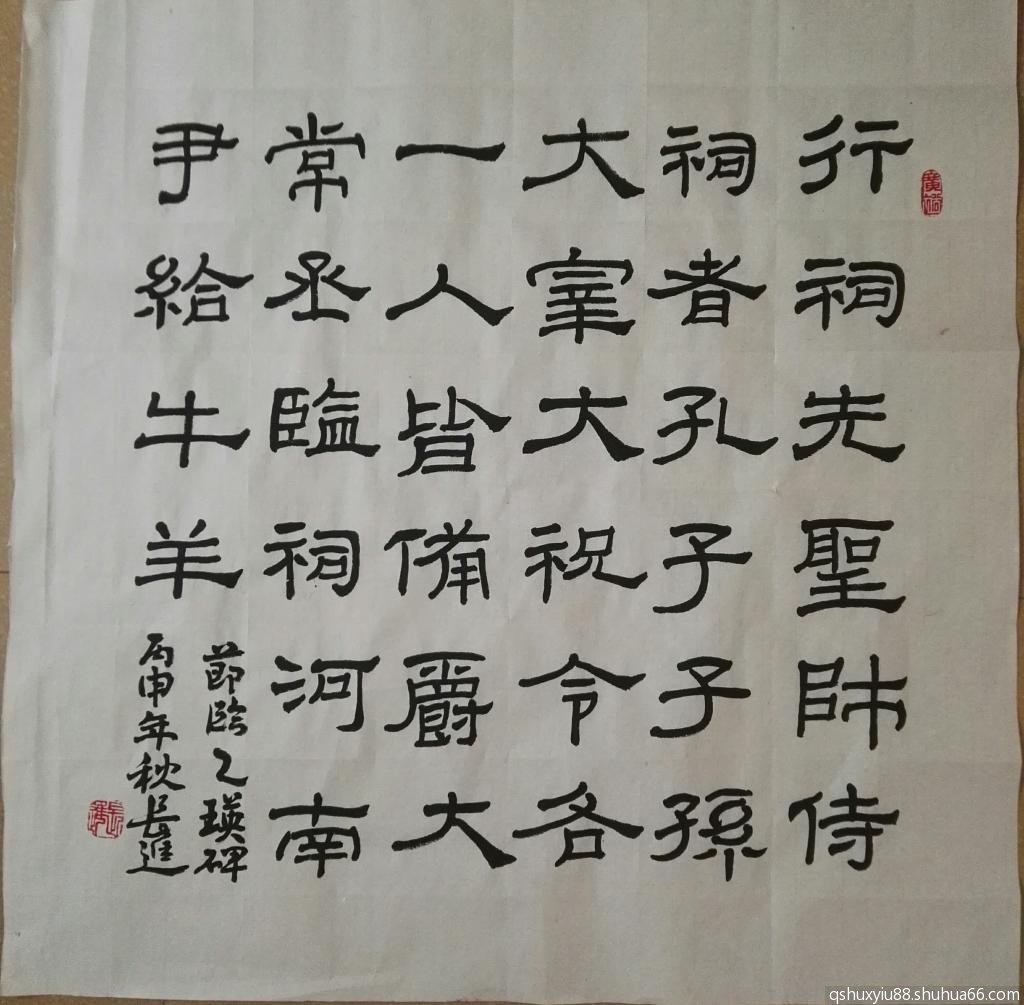 行祠先聖師侍
祠者孔子子孫
大宰大祝令各
一人皆備爵大
常丞監祠河南
尹給牛羊
節臨乙瑛碑
丙申年秋長進
qshuxyiu88.shuhua66.com